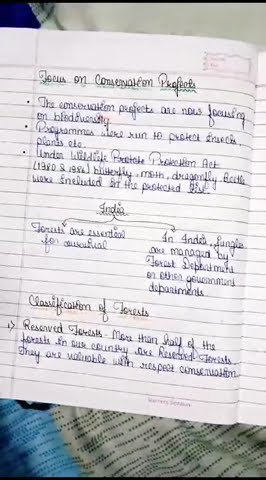 Focus on Conservation Projects
• The conservation projects are now focusing
on biodiversity
• Programmes were run to protect insects,
plants etc
• Under Wildlife Protection Act
(1980 & 1986) butterfly, moth, dragonfly, Beetle
were included in the protected list
India
Forests are essential
for survival
In India, jungles
are managed by
Forest Department
or other government
departments
Classification of Forests
1) Reserved Forests - More than half of the
forests in our country are Reserved Forests
They are valuable with respect conservation